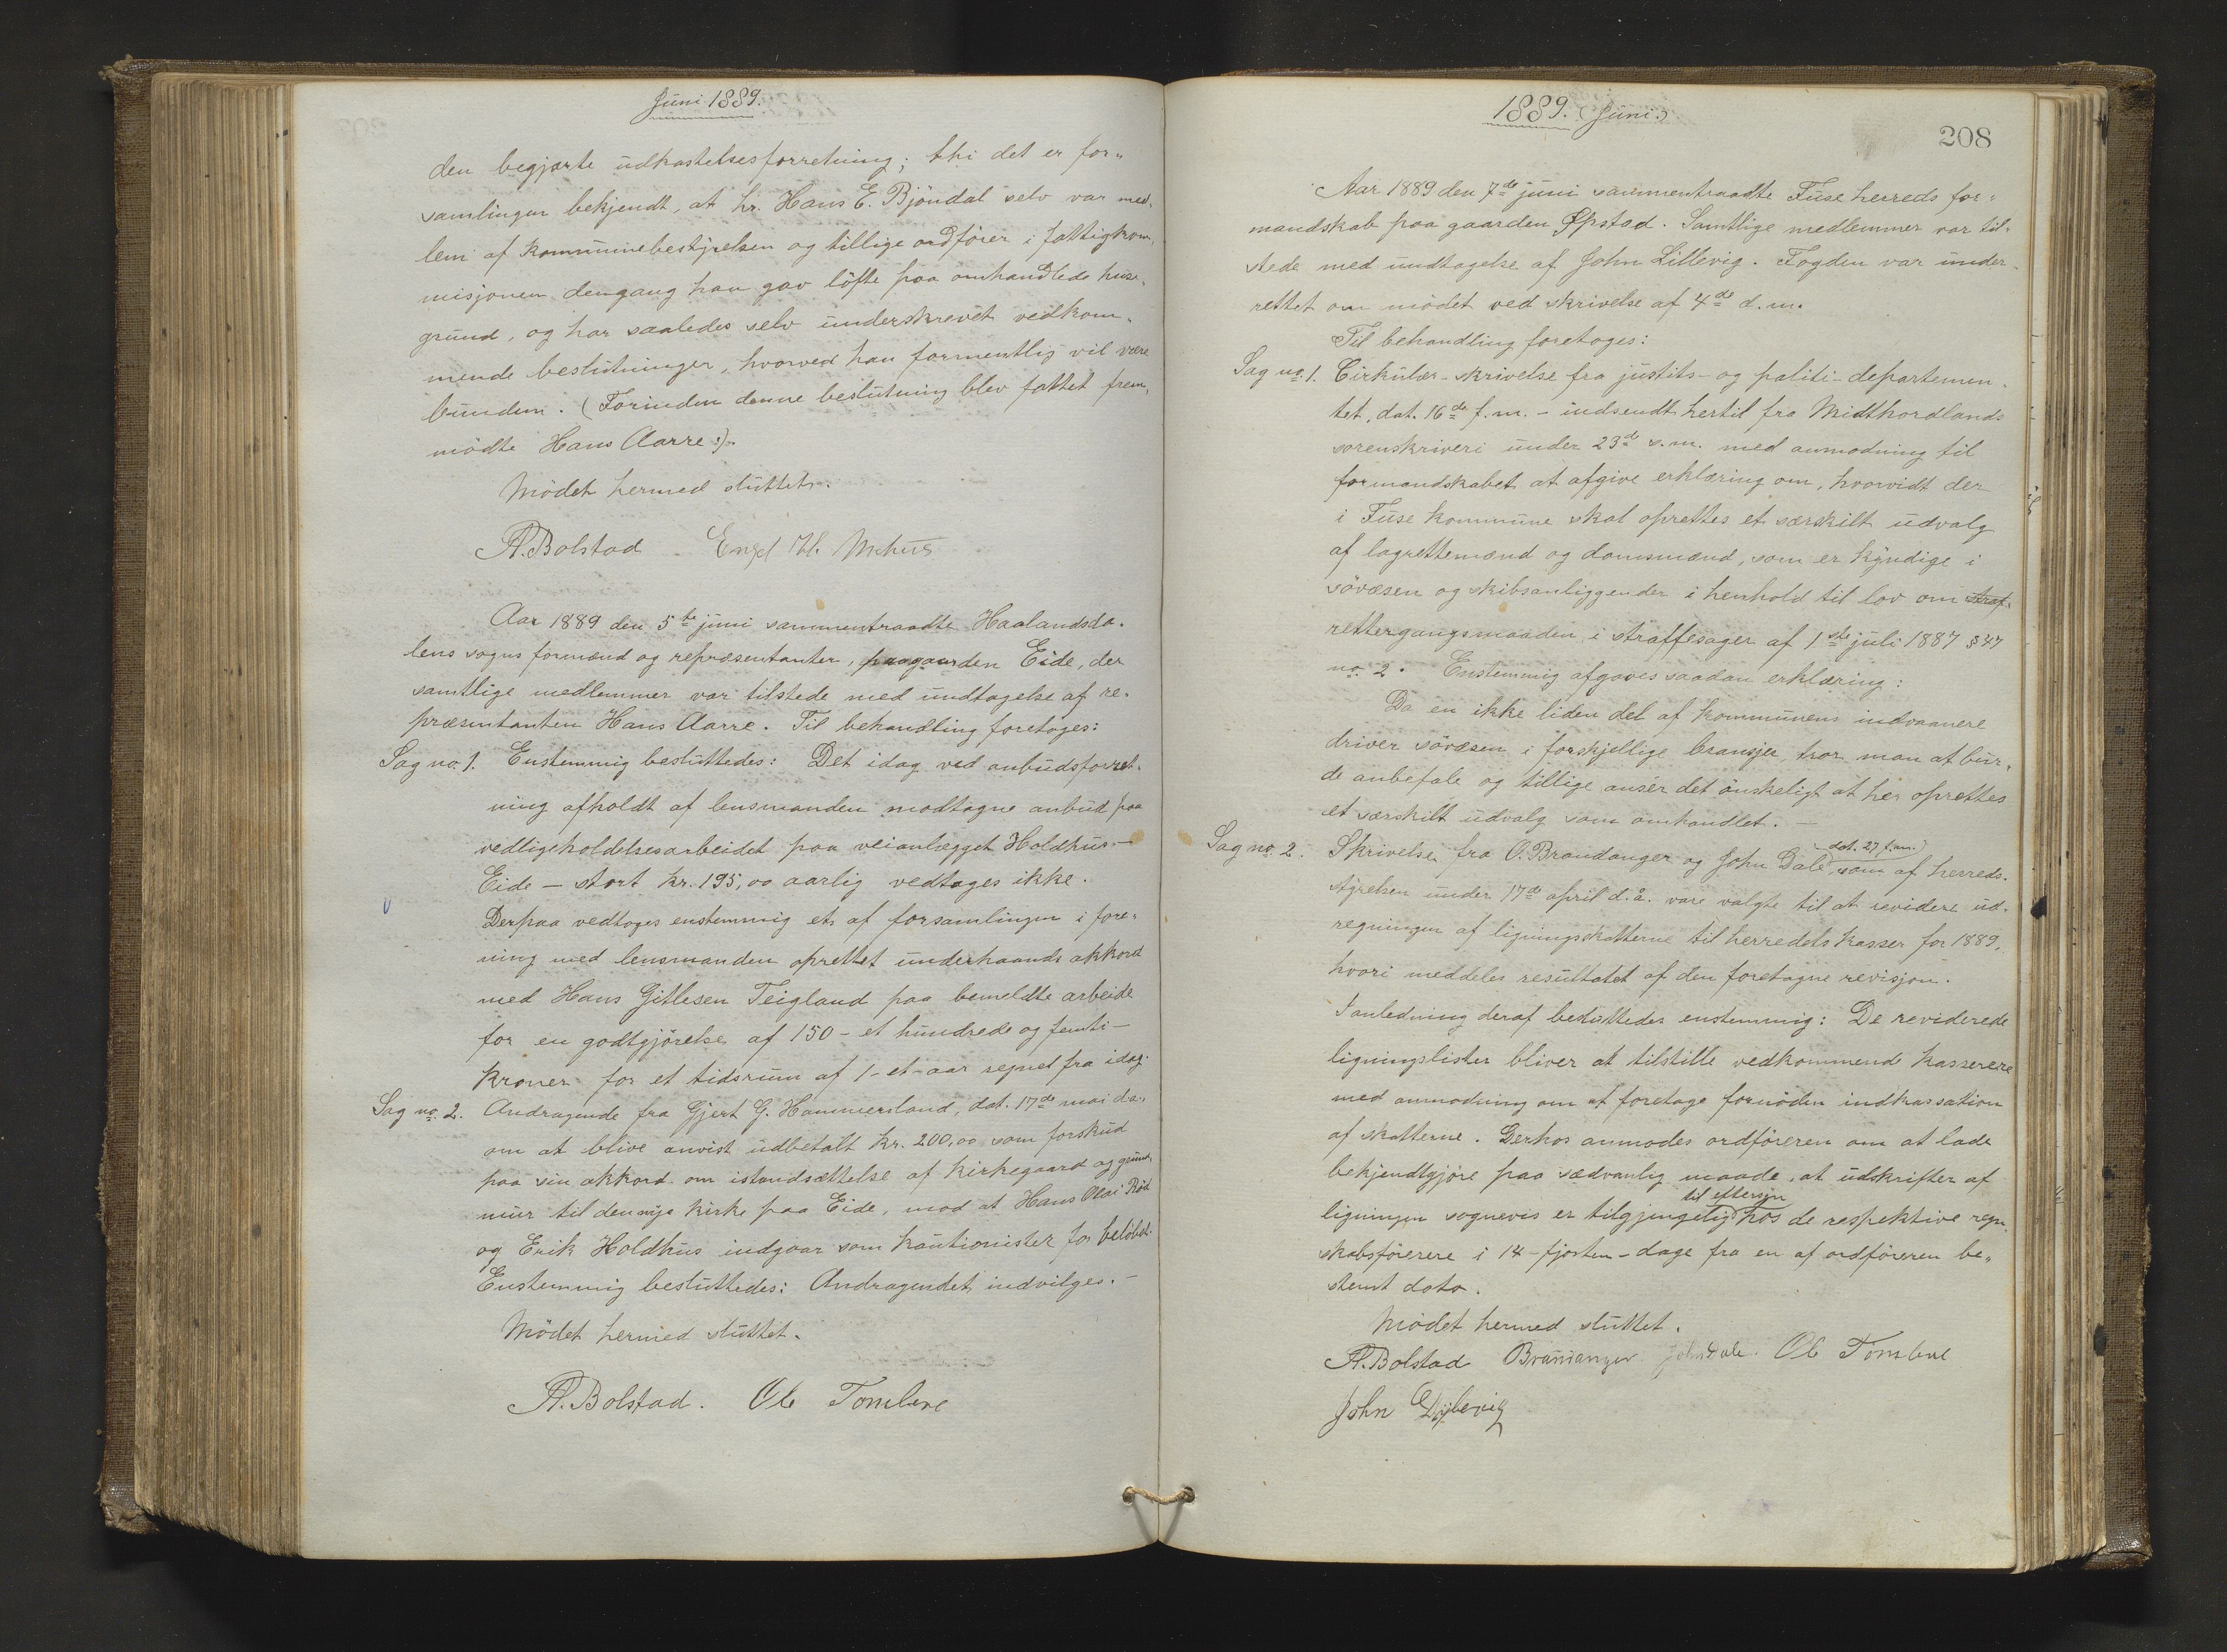 Juni 1889.
den begjærte udkastelsesforretning; thi det er for-
samlingen bekjendt, at hr. Hans E. Bjöndal selv var med-
lem af kommunebestyrelsen og tillige ordförer i fattigkom-
misjonen dengang han gav löfte paa omhandlede hus-
grund, og har saaledes selv underskrevet vedkom-
mende beslutninger, hvorved han formentlig vil være
bunden. (Forinden denne beslutning blev fattet frem-
mödte Hans Aarre :).
Mödet hermed sluttet.
A. Bolstad Engel M. Mehus
Aar 1889 den 5te juni sammentraadte Haalandsda-
lens sogns formænd og repræsentanter, paa gaarden Eide, der
samtlige medlemmer var tilstede med undtagelse af re-
præsentanten Hans Aarre. Til behandling foretoges:
Sag no. 1. Enstemmig besluttedes: Det idag ved anbudsforret-
ning afholdt af lensmanden modtagne anbud paa
vedligeholdelsesarbeidet paa veianlægget Holdhus-
Eide - stort kr. 195,00 aarlig vedtages ikke.
Derpaa vedtoges enstemmig et af forsamlingen i fore-
ning med lensmanden oprettet underhaands akkord
med Hans Gitlesen Teigland paa bemeldte arbeide
for en godtgjörelse af 150 - et hundrede og femti -
kroner for et tidsrum af 1 - et - aar regnet fra idag.
Sag no. 2. Andragende fra Gjert G. Hammersland, dat. 17de mai d.a.
om at blive anvist udbetalt kr. 200,00 som forskud
paa sin akkord om istandsættelse af kirkegaard og grund-
mur til den nye kirke paa Eide, mod at Hans Olai Röd
og Erik Holdhus indgaar som kautionister for belöbet.
Enstemmig besluttedes: Andragendet indvilges. -
Mödet hermed sluttet.
A. Bolstad. Ole Tombre
1889. (Juni)
208
Aar 1889 den 7de juni sammentraadte Fuse herreds for-
mandskab paa gaarden Opstad. Samtlige medlemmer var til-
stede med undtagelse af John Lillevig. Fogden var under-
rettet om mödet ved skrivelse af 4de d.m.
Til behandling foretoges:
Sag no. 1. Cirkulær-skrivelse fra justits- og politi-departemen-
tet, dat. 16de f.m. - indsendt hertil fra Midthordlands
sorenskriveri under 23de s.m. med anmodning til
formandskabet at afgive erklæring om, hvorvidt der
i Fuse kommune skal oprettes et særskilt udvalg
af lagrettemænd og domsmænd, som er kyndige i
sövæsen og skibsanliggender i henhold til lov om straf-
rettergangsmaaden i straffesager af 1ste juli 1887 § 47
no. 2. Enstemmig afgaves saadan erklæring:
Da en ikke liden del af kommunens indvaanere
driver sövæsen i forskjellige bransjer, tror man at bur-
de anbefale og tillige ansér det önskeligt at her oprettes
et særskilt udvalg som omhandlet. -
Sag no. 2. Skrivelse fra O. Brandanger og John Dale, dat. 27 f.m. som af herreds-
styrelsen under 17de april d.å. vare valgte til at revidere ud-
regningen af ligningsskatterne til herredets kasser for 1889,
hvori meddeles resultatet af den foretagne revisjon.
I anledning deraf besluttedes enstemmig: De reviderede
ligningslister bliver at tilstille vedkommende kasserere
med anmodning om at foretage fornöden indkassation
af skatterne. Derhos anmodes ordföreren om at lade
bekjendtgjöre paa sædvanlig maade, at udskrifter af
ligningen sognevis er tilgjengelig til eftersyn hos de respektive regn-
skabsförerere i 14 - fjorten - dage fra en af ordföreren be-
stemt dato.
Mödet hermed sluttet.
A. Bolstad Brandanger John Dale. Ole Tombre
John Dybevig